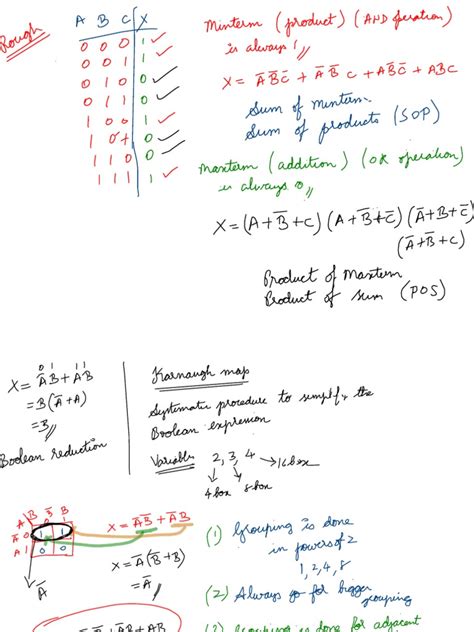 Rough
A B C X
0 0 0 1
0 0 1 1
0 1 0 0
0 1 1 0
1 0 0 1
1 0 1 0
1 1 0 0
1 1 1 1
Minterm (product) (AND operation)
is always 1
X = A̅B̅C̅ + A̅B̅C + AB̅C̅ + ABC
Sum of minterm
Sum of products (SOP)
Maxterm (addition) (OR operation)
is always 0
X = (A+B̅+C) (A+B̅+C̅) (A̅+B+C̅)
(A̅+B̅+C)
Product of Maxterm
Product of sum (POS)
0 1 1 1
X = A̅B + AB
= B(A̅+A)
= B
Boolean reduction
Karnaugh map
Systematic procedure to simplify the
Boolean expression
Variables 2, 3, 4 → 16 box
4 box 8 box
A B B̅ B
A̅ 0 1 1
A 1 0 0
A̅
X = A̅B̅ + A̅B
X = A̅(B̅+B)
= A̅
(1) Grouping is done
in powers of 2
1, 2, 4, 8
(2) Always go for bigger
grouping
Grouping is done for adjacent